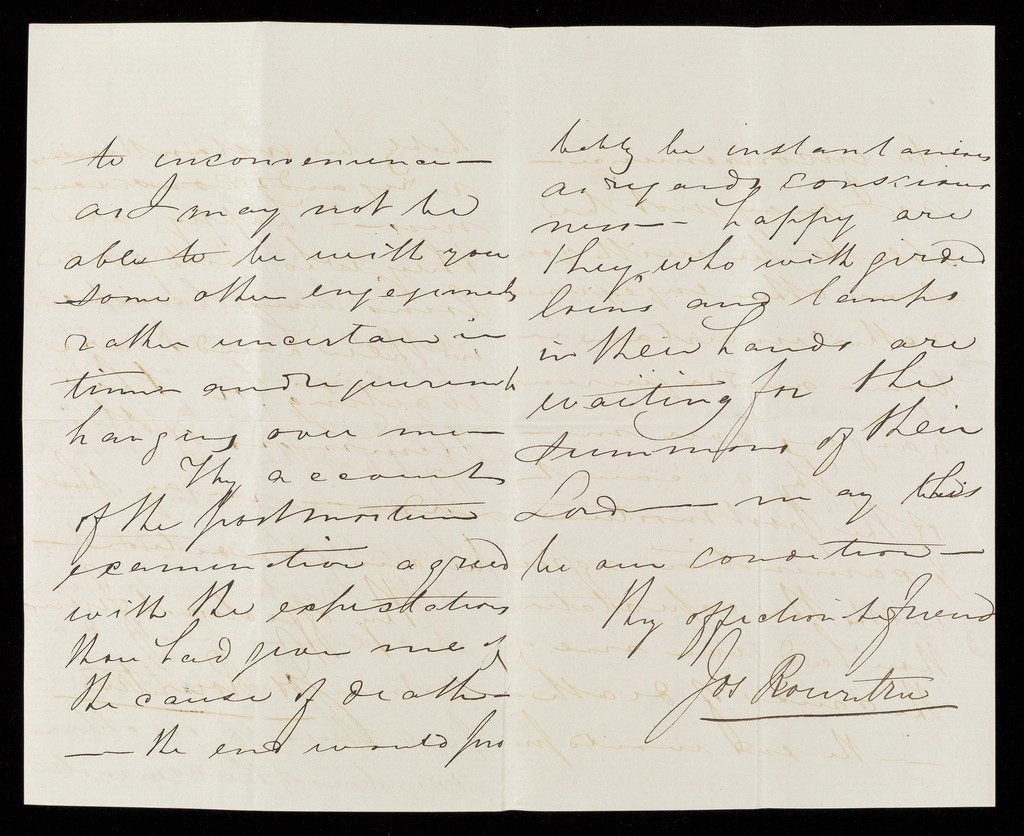 to inconvenience —
as I may not be
able to be with you
some other engagements
rather uncertain in
time and requirements
hanging over me —
Thy account
of the post mortem
examination agreed
with the expectation
thou had given me of
the cause of death —
— the end would pro
bably be instantaneous
as regards conscious
ness — happy are
they who with girded
loins and lamps
in their hands are
waiting for the
summons of their
Lord — may this
be our condition —
Thy affectionate friend
Jos Rowntree